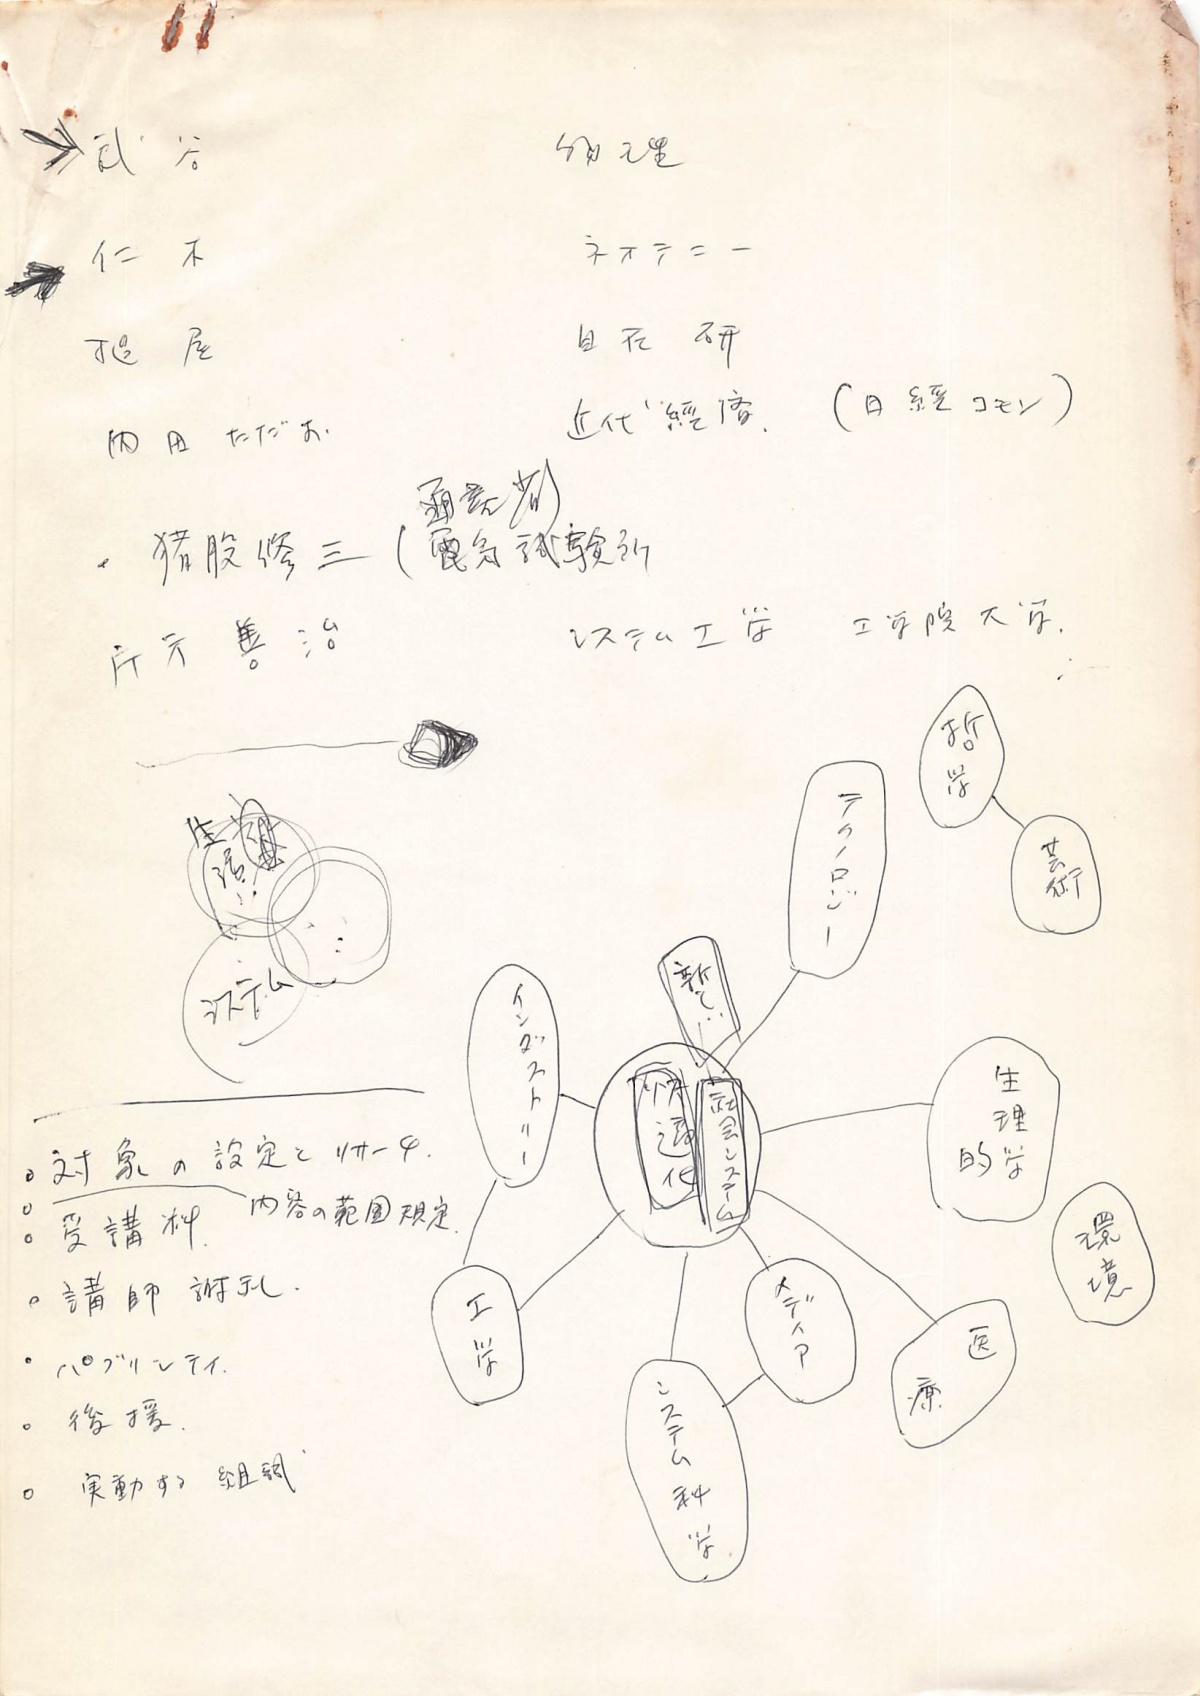 武谷 物理
仁木 ネオテニー
槌屋 自在研
内田ただお. 近代経済. (日経コモン)
通産省)
・猪股修三 (電気試験所
片方善治 システム工学 工学院大学.
哲学
芸術
テクノロジー
生活
システム
新しい
インダストリー
社会システム
生理学的
環境
対象の設定とリサーチ.
内容の範囲規定.
受講料.
講師謝礼.
パブリシティ.
後援.
実動する組織
工学
メディア
医療
システム科学